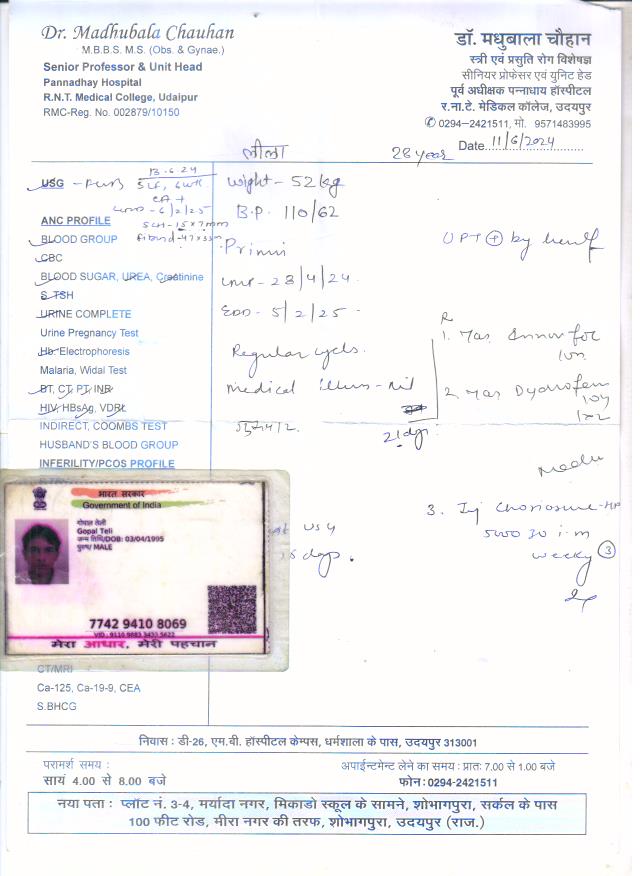 Dr. Madhubala Chauhan
M.B.B.S. M.S. (Obs. & Gynae.)
Senior Professor & Unit Head
Pannadhay Hospital
R.N.T. Medical College, Udaipur
RMC-Reg. No. 002879/10150
डॉ. मधुबाला चौहान
स्त्री एवं प्रसुति रोग विशेषज्ञ
सीनियर प्रोफेसर एवं युनिट हेड
पूर्व अधीक्षक पन्नाधाय हॉस्पीटल
र.ना.टे. मेडिकल कॉलेज, उदयपुर
0294-2421511, मो. 9571483995
Date 11/6/2024
लीला
28 year
USG
13.6.24
SLF, 6wk
CA +
6/2/25
ANC PROFILE
BLOOD GROUP
CBC
BLOOD SUGAR, UREA, Creatinine
S. TSH
URINE COMPLETE
Urine Pregnancy Test
Hb. Electrophoresis
Malaria, Widal Test
BT, CT, PT, INR
HIV, HBsAg, VDRL
INDIRECT, COOMBS TEST
HUSBAND'S BLOOD GROUP
INFERILITY/PCOS PROFILE
wight - 52 kg
B.P. 110/62
Primi
LMP - 28/4/24
EDD - 5/2/25 -
Regular cycls.
medical illnes - nil
UPT + by herself
R
1.
2.
3. Inj
5000 IU i.m
weekly 3
USG
भारत सरकार
Government of India
गोपाल तेली
Gopal Teli
जन्म तिथि/DOB: 03/04/1995
पुरुष/ MALE
7742 9410 8069
VID : 9110 9883 3433 5622
मेरा आधार, मेरी पहचान
CT/MRI
Ca-125, Ca-19-9, CEA
S.BHCG
निवास : डी-26, एम.बी. हॉस्पीटल केम्पस, धर्मशाला के पास, उदयपुर 313001
परामर्श समय :
सायं 4.00 से 8.00 बजे
अपाईन्टमेन्ट लेने का समय : प्रातः 7.00 से 1.00 बजे
फोन : 0294-2421511
नया पता : प्लॉट नं. 3-4, मर्यादा नगर, मिकाडो स्कूल के सामने, शोभागपुरा, सर्कल के पास
100 फीट रोड, मीरा नगर की तरफ, शोभागपुरा, उदयपुर (राज.)